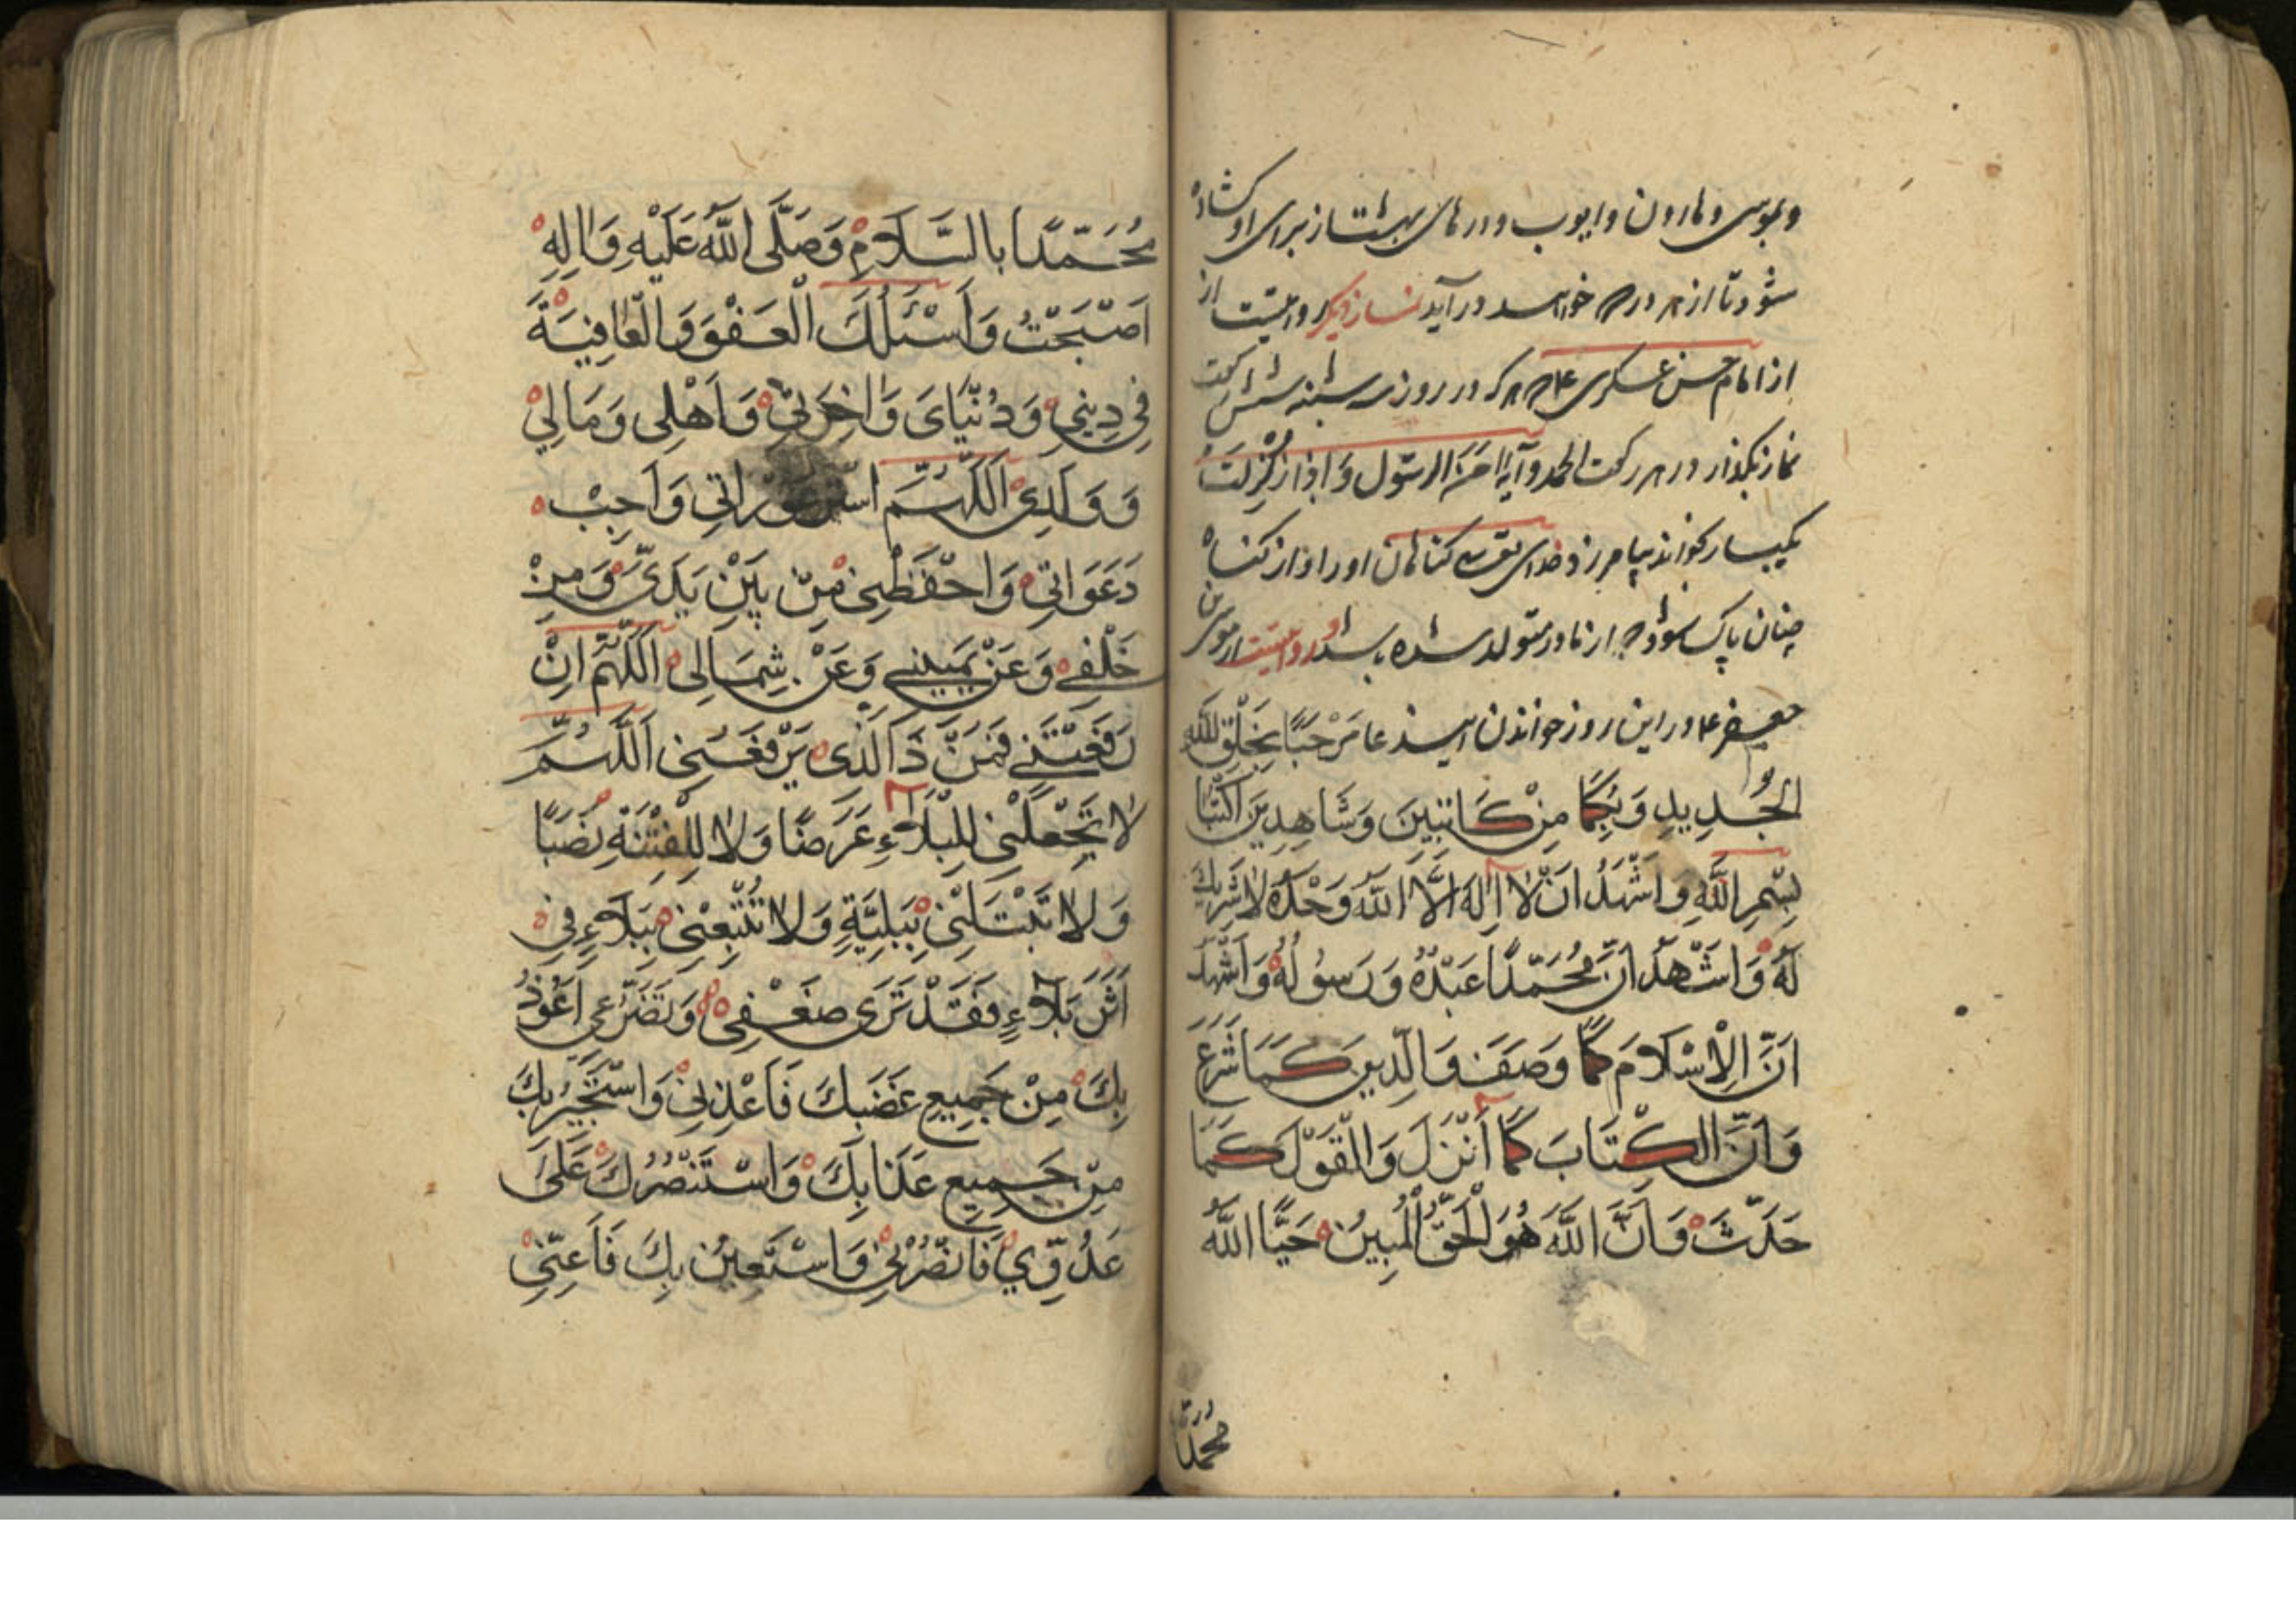 و بموسی و هارون و ایوب و درهای بهشت از برای او کشاده
شود تا از هر در که خواهد در آید نماز دیگر روایتست از
از امام حسن عسکری ع م که در روز سه شنبه شش رکعت
نماز بگذار در هر رکعت الحمد و آیه اٰمَنَ الرسول وَ اذا زلزلت
یکبار بخواند بیامرزد خدای تعالی گناهان او را و از گناه
چنان پاک شود که از مادر متولد شده باشد و روایتست از موسی بن
جعفر ع م در این روز خواندن این دعا مَرْحَبًا بِخَلْقِ اللّٰهِ
الْجَدِيدِ وَبِكُمَا مِنْ كَاتِبَيْنَ وَشَاهِدِينَ اكْتُبَا
بِسْمِ اللّٰهِ وَاَشْهَدُ اَنْ لَا اِلٰهَ اِلَّا اللّٰهَ وَحْدَهُ لَا شَرِيكَ
لَهُ وَاَشْهَدُ اَنَّ مُحَمَّدًا عَبْدُهُ وَرَسُولُهُ وَاَشْهَدُ
اَنَّ الْاِسْلَامَ كَمَا وَصَفَ وَالدِّينَ كَمَا شَرَعَ
وَاَنَّ الْكِتَابَ كَمَا اَنْزَلَ وَالْقَوْلَ كَمَا
حَدَّثَ وَاَنَّ اللّٰهَ هُوَ الْحَقُّ الْمُبِينُ حَيَّا اللّٰهُ
مُحَمَّدًا
مُحَمَّدًا بِالسَّلَامِ وَصَلَّى اللّٰهُ عَلَيْهِ وَاٰلِهِ
اَصْبَحْتُ وَاَسْئَلُكَ الْعَفْوَ وَالْعَافِيَةَ
فِي دِينِي وَدُنْيَايَ وَاٰخِرَتِي وَاَهْلِي وَمَالِي
وَوَلَدِي اَللّٰهُمَّ اسْتُرْ عَوْرَاتِي وَاَجِبْ
دَعَوَاتِي وَاحْفَظْنِي مِنْ بَيْنِ يَدَيَّ وَمِنْ
خَلْفِي وَعَنْ يَمِينِي وَعَنْ شِمَالِي اَللّٰهُمَّ اِنْ
رَفَعْتَنِي فَمَنْ ذَا الَّذِي يَرْفَعُنِي اَللّٰهُمَّ
لَا تَجْعَلْنِي لِلْبَلَاءِ عَرَضًا وَلَا لِلْفِتْنَةِ نَصَبًا
وَلَا تَبْتَلِنِي بِبَلِيَّةٍ وَلَا تُتْبِعْنِي بِبَلَاءٍ فِي
اَثَرِ بَلَاءٍ فَقَدْ تَرَى ضَعْفِي وَتَضَرُّعِي اَعُوذُ
بِكَ مِنْ جَمِيعِ غَضَبِكَ فَاَعِذْنِي وَاَسْتَجِيرُ بِكَ
مِنْ جَمِيعِ عَذَابِكَ وَاَسْتَنْصُرُكَ عَلَى
عَدُوِّي فَانْصُرْنِي وَاَسْتَعِينُ بِكَ فَاَعِنِّي